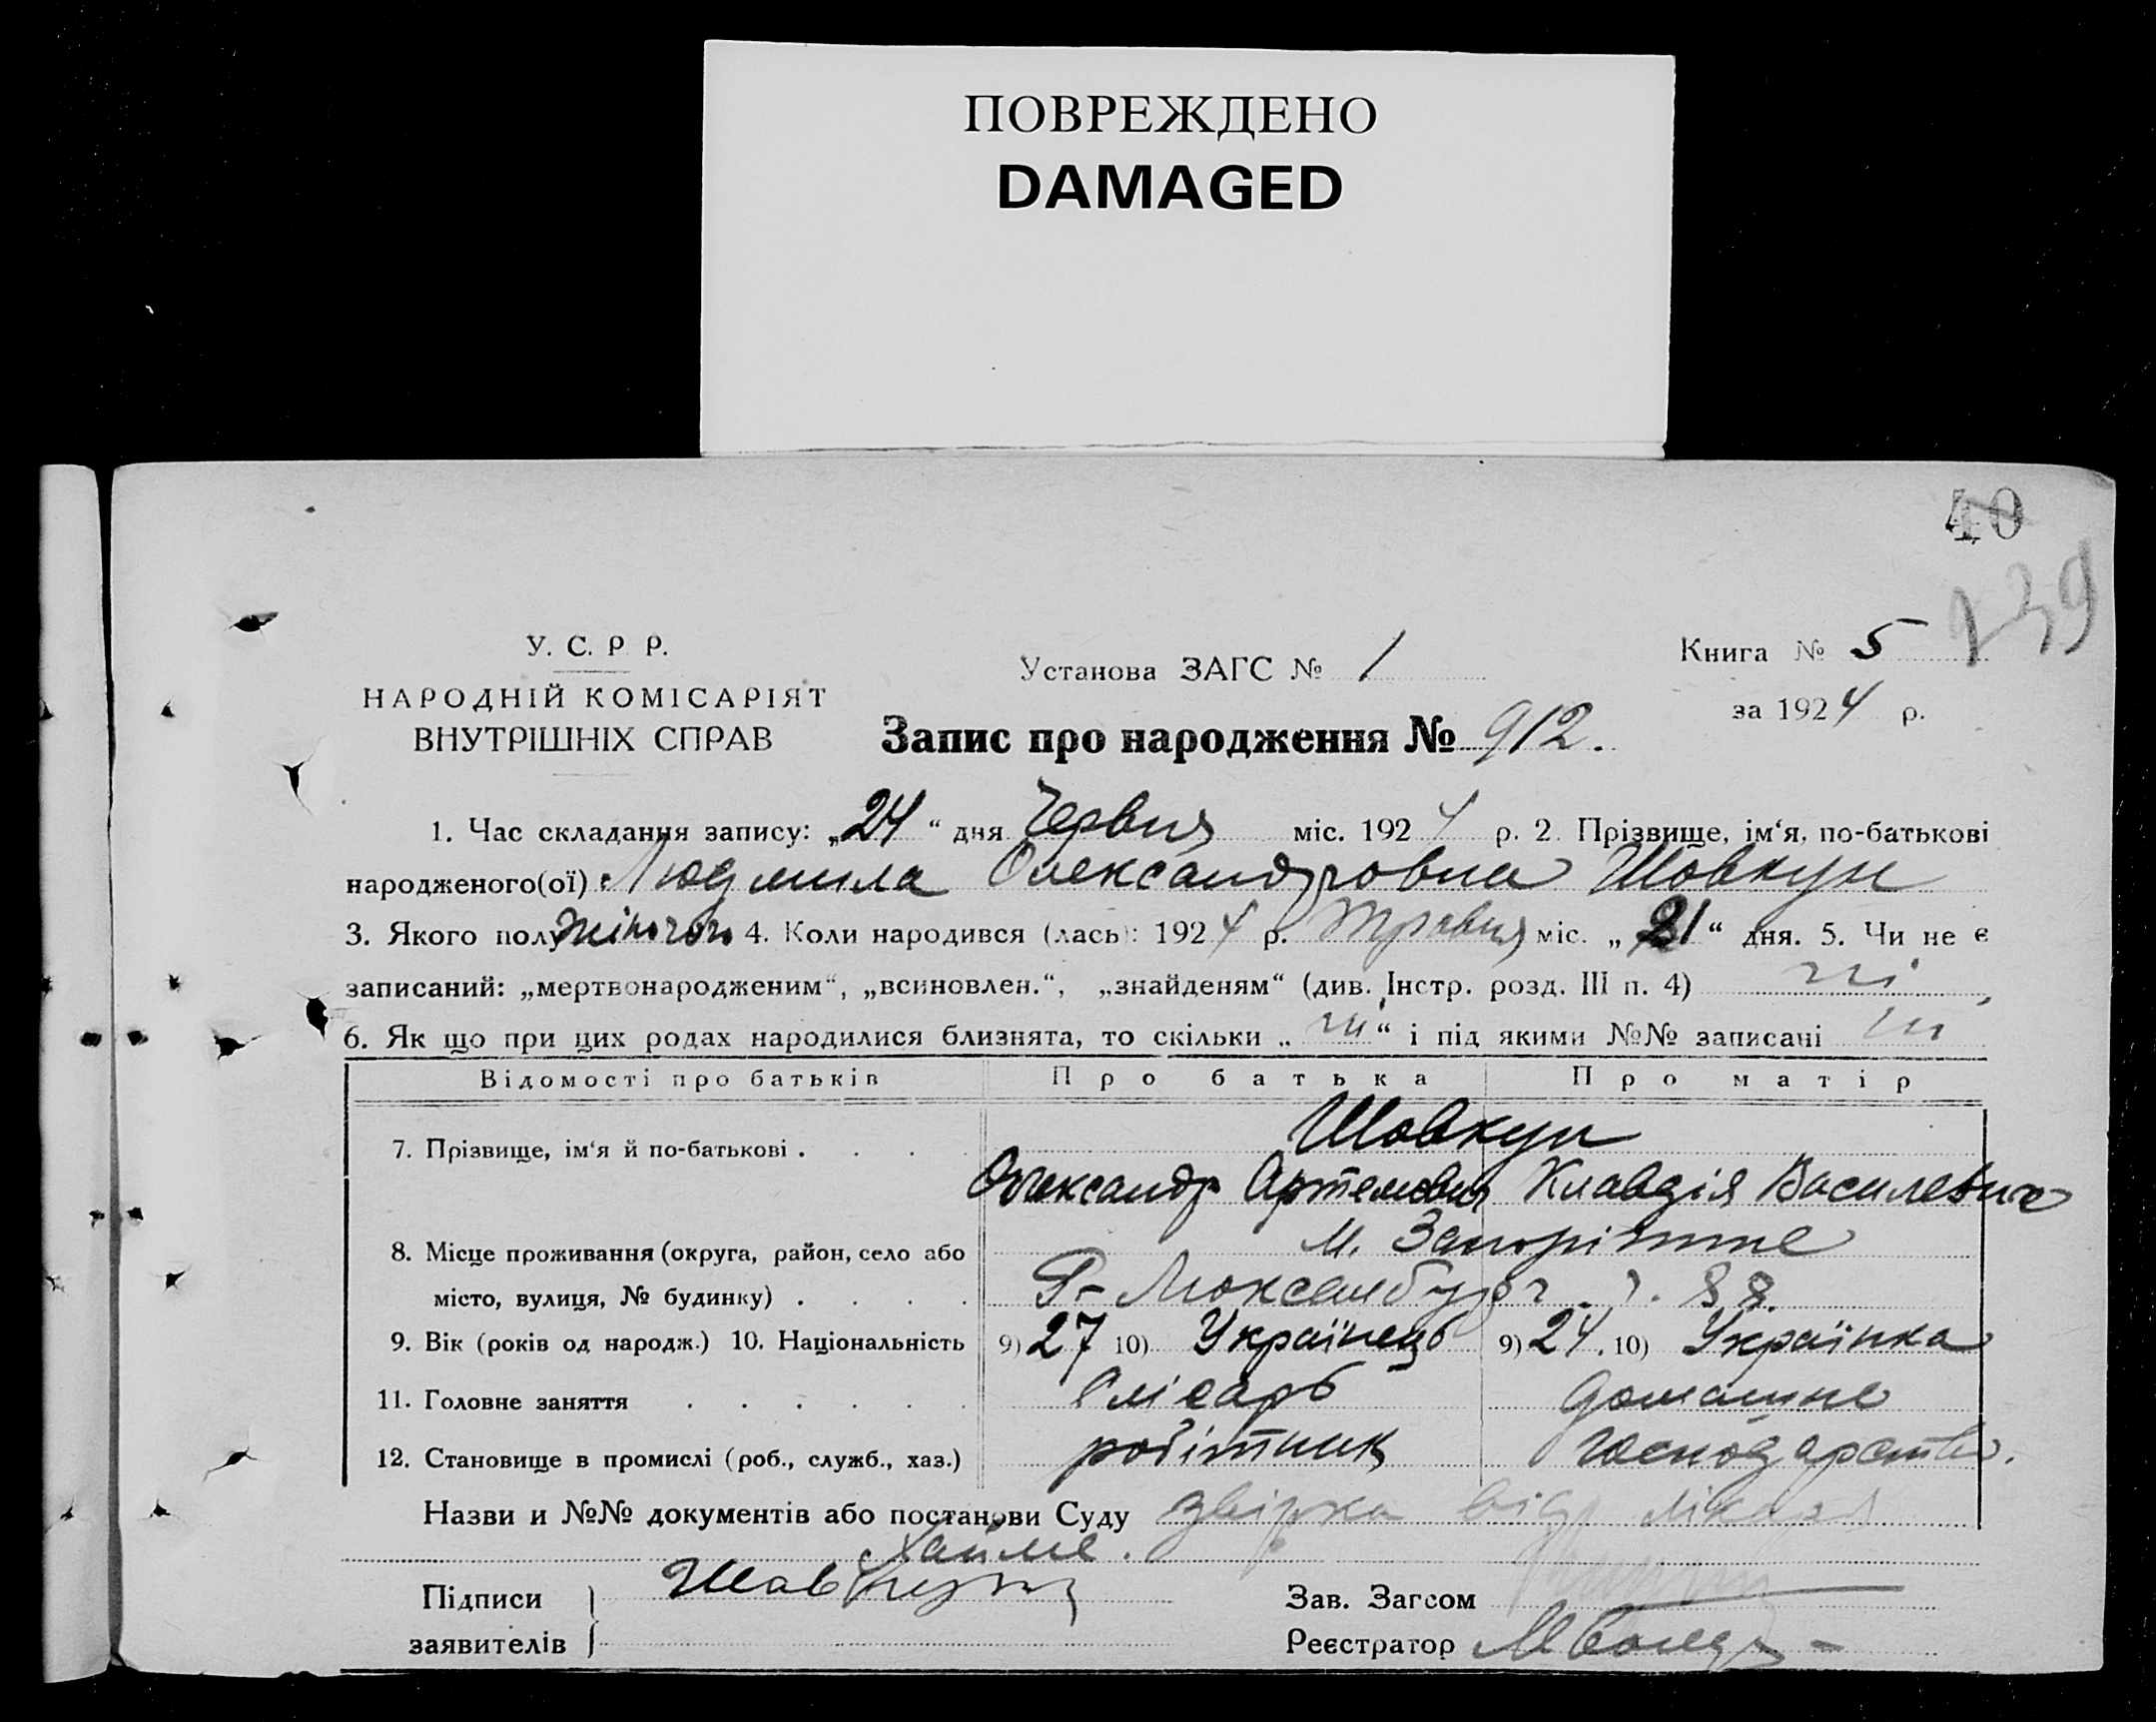 ПОВРЕЖДЕНО
DAMAGED
40
239
У. С. Р Р.
НАРОДНІЙ КОМІСАРІЯТ
ВНУТРІШНІХ СПРАВ
Установа ЗАГС № 1
Книга № 5
за 1924 р.
Запис про народження № 912.
1. Час складання запису: „24“ дня Червня міс. 1924 р. 2. Прізвище, ім‘я, по-батькові
народженого(ої) Людмила Олександровна Шовкун
3. Якого полу жіночого 4. Коли народився (лась): 1924 р. травня міс. „21“ дня. 5. Чи не є
записаний: „мертвонародженим“, „всиновлен.“, „знайденям“ (див. Інстр. розд. III п. 4) ні
6. Як що при цих родах народилися близнята, то скільки „ні“ і під якими №№ записані ні
Відомості про батьків Про батька Про матір
7. Прізвище, ім‘я й по-батькові . Шовкун
Олександр Артемович Клавдія Василевна
8. Місце проживання (округа, район, село або м. Запоріжжє
місто, вулиця, № будинку) . Р-Люксембург 88.
9. Вік (років од народж.) 10. Національність 9) 27 10) Українець 9) 24. 10) Українка
11. Головне заняття слісарь домашнє
12. Становище в промислі (роб., служб., хаз.) робітник господарство.
Назви и №№ документів або постанови Суду від лікаря
Підписи Шовкун
заявителів
Зав. Загсом
Реєстратор